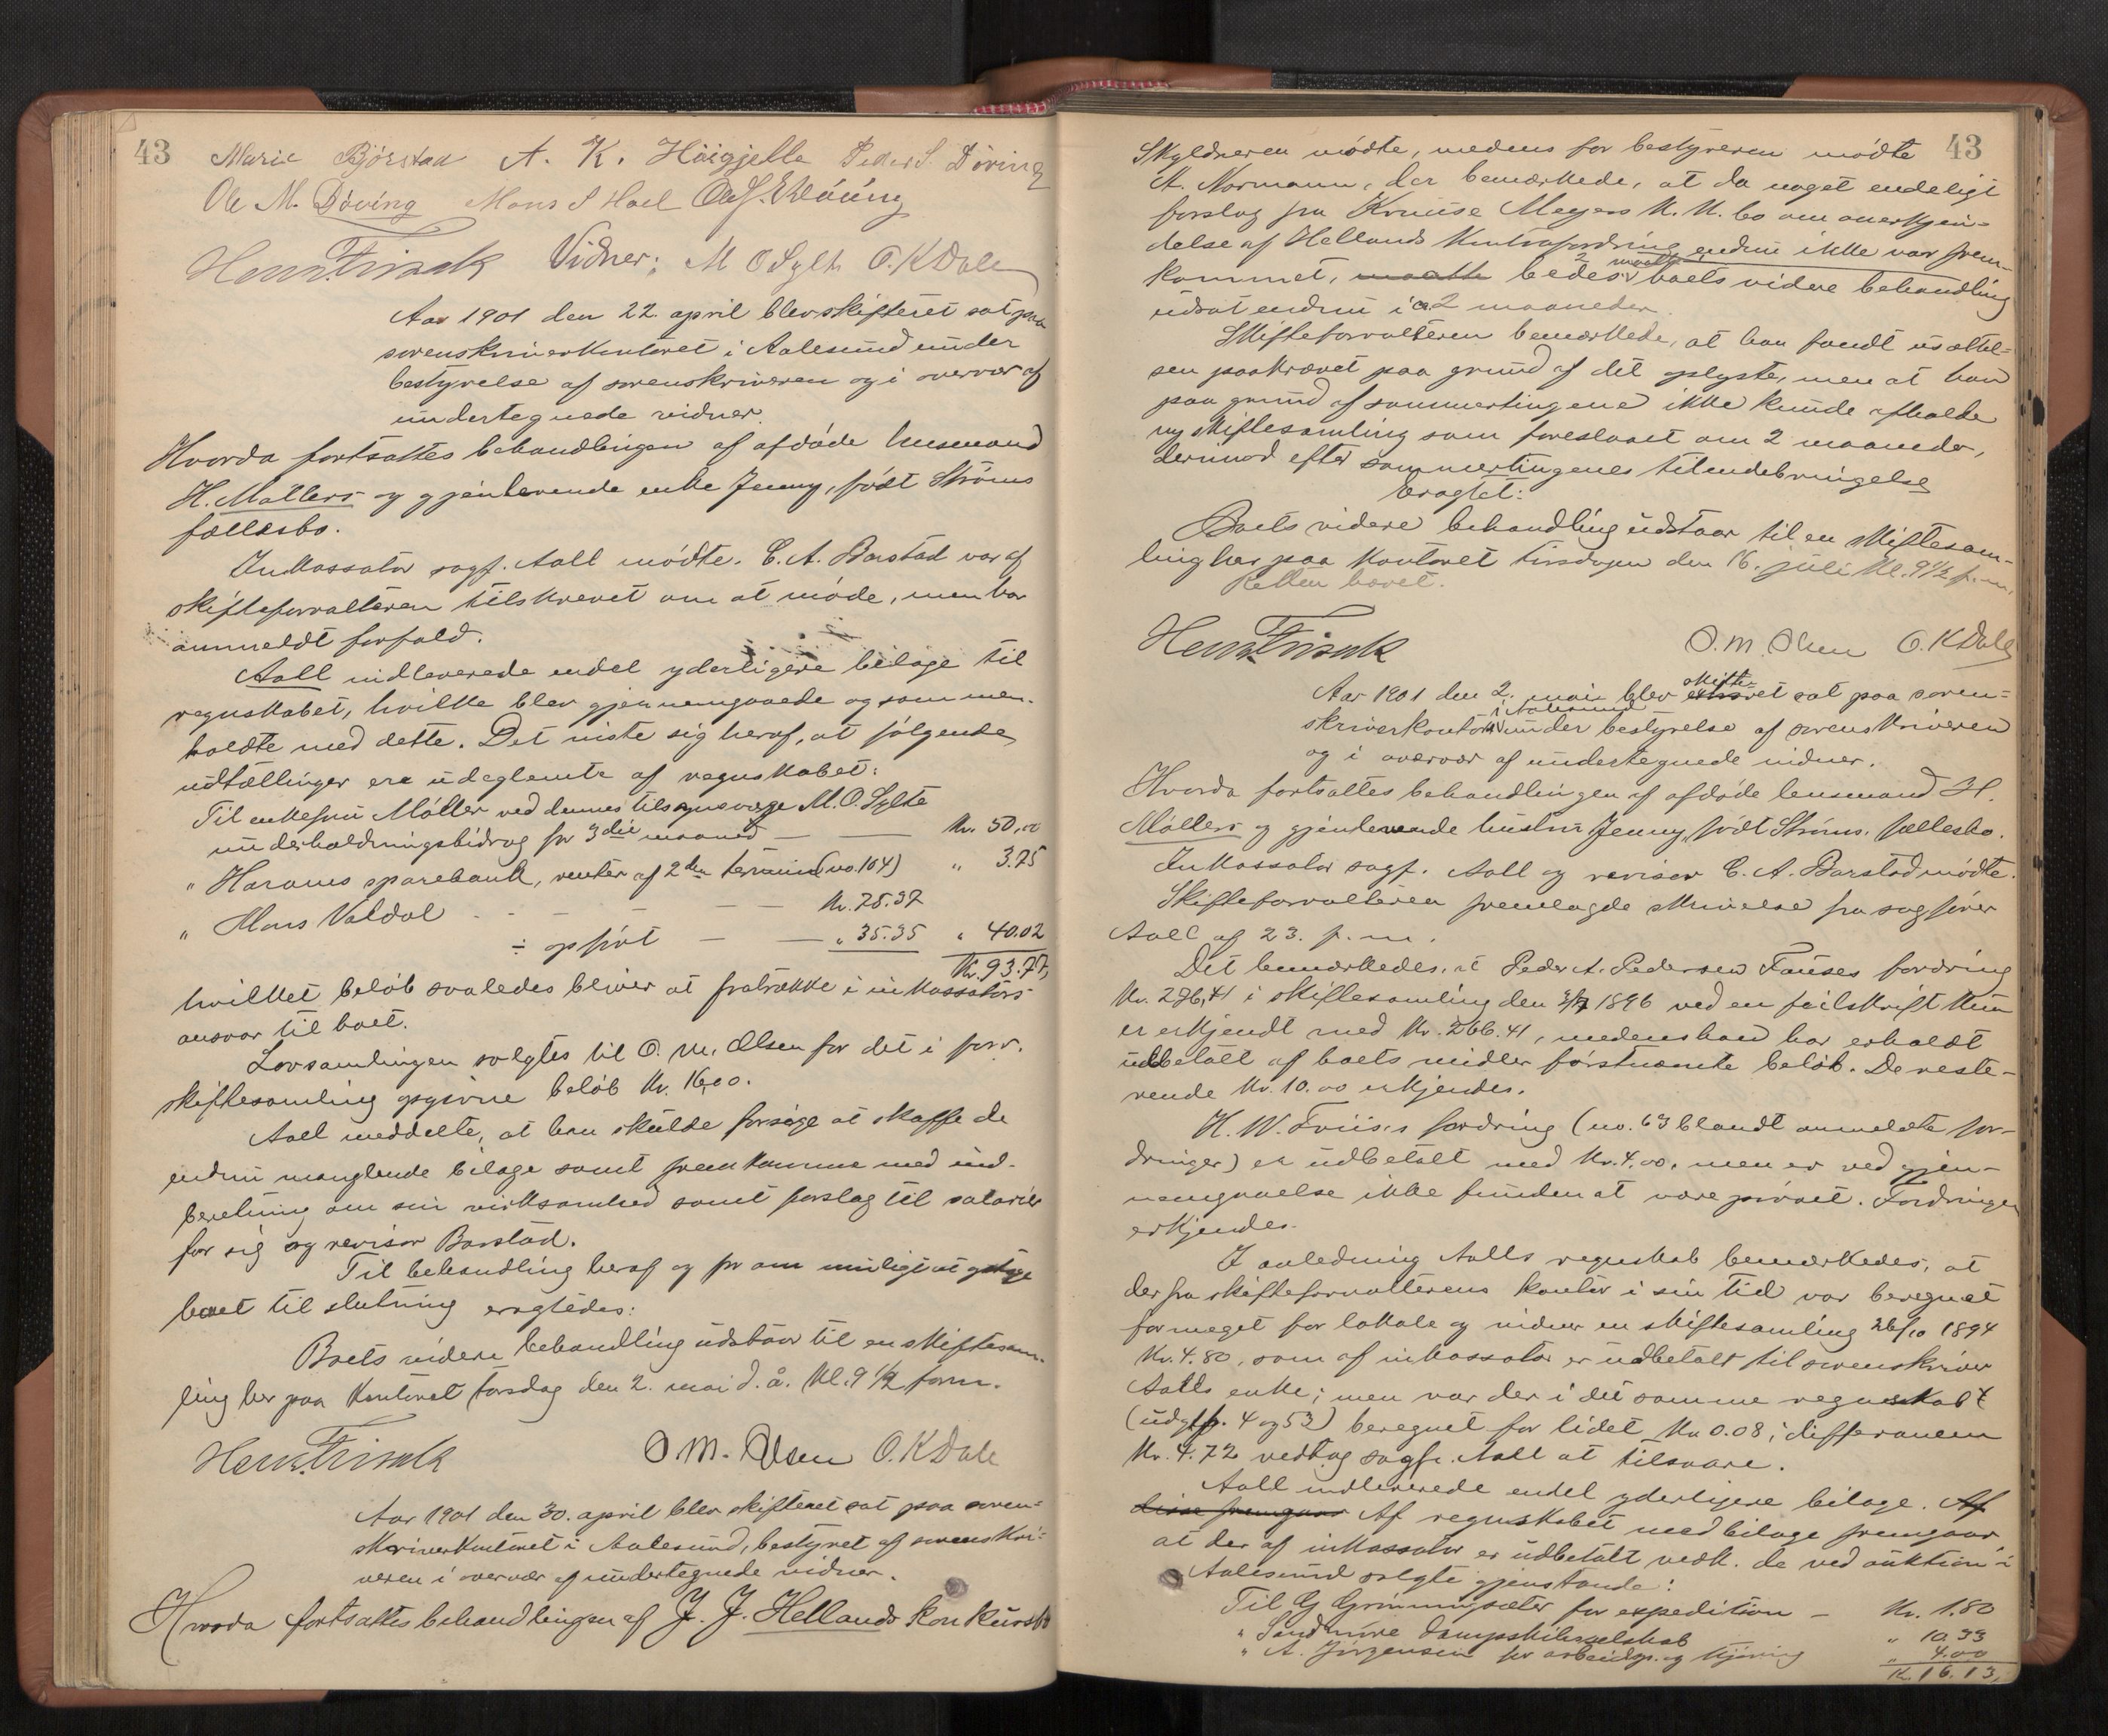 43
Marie Bjørstad A. K. Höigjelle Peder S. Döving
Ole M. Döving Mons S Hoel
Vidner: M O Sylte O. K Dale
Aar 1901 den 22 april blev skifteret sat paa
sorenskriverkontoret i Aalesund under
bestyrelse af sorenskriveren og i overvær af
undertegnede vidner.
Hvorda fortsattes behandlingen af afdøde lensmand
H. Møllers og gjenlevende enke Jenny, født Strøms
fællesbo.
Inkassator sagf. Aall mødte. C. A. Barstad var af
skifteforvalteren tilskrevet om at møde, men har
anmeldt forfald.
Aall indleverede endel yderligere bilage til
regnskabet, hvilke blev gjennemgaaede og sammen-
holdte med dette. Det viste sig heraf, at følgende
udtællinger ere udeglemte af regnskabet:
Til enkefru Møller ved dennes tilsynsværge M. O. Sylte
underholdningsbidrag for 3die maaned — — Kr. 50,00
" Harams sparebank, renter af 2den termin (no. 104) " 3.75
" Hans Valdal - - - — — Kr. 75.37
÷ opført — — " 35.35 " 40.02
Kr. 93.77,
hvilket beløb saaledes bliver at fratrække i inkassators
ansvar til boet.
Lovsamlingen solgtes til O. M. Olsen for det i forr.
skiftesamling opgivne beløb Kr. 16,00.
Aall meddelte, at han skulde forsøge at skaffe de
endnu manglende bilage samt fremkomme med ind-
beretning om sin virksomhed samt forslag til salarier
for sig og revisor Barstad.
Til behandling heraf og for om muligt at
boet til slutning eragtedes:
Boets videre behandling udstaar til en skiftesam-
ling her paa kontoret torsdag den 2. mai d. å. kl. 9 1/2 form.
O. M. Olsen O. K Dale
Aar 1901 den 30. april blev skifteret sat paa soren-
skriverkontoret i Aalesund, bestyret af sorenskri-
veren i overvær af undertegnede vidner.
Hvorda fortsattes behandlingen af J. J. Hellands konkursbo
43
Skyldneren mødte, medens for bestyreren mødte
A. Normann, der bemærkede, at da noget endeligt
forslag fra Kruuse Meyers K. K. bo om anerkjen-
delse af Hellands kontrafordring endnu ikke var frem-
kommet, maatte bedes boets videre behandling
udsat endnu i ca 2 maaneder.
Skifteforvalteren bemærkede, at han fandt udsættel-
sen paakrævet paa grund af det oplyste, men at han
paa grund af sommertingene ikke kunde afholde
ny skiftesamling som foreslaaet om 2 maaneder,
derimod efter sommertingenes tilendebringelse
Eragtet:
Boets videre behandling udstaar til en skiftesam-
ling her paa kontoret tirsdagen den 16. juli kl. 9 1/2 f.m.
Retten hævet.
O. M. Olsen O. K Dale
Aar 1901 den 2. mai blev skifteret sat paa soren-
skriverkontoret i Aalesund under bestyrelse af sorenskriveren
og i overvær af undertegnede vidner.
Hvorda fortsattes behandlingen af afdøde lensmand H.
Møllers og gjenlevende hustru Jenny, født Strøms, fællesbo.
Inkassator sagf. Aall og revisor C. A. Barstad mødte.
Skifteforvalteren fremlagde skrivelse fra sagfører
Aall af 23. f. m.
Det bemærkedes, at Peder A. Pedersen Fauses fordring
Kr. 276,41 i skiftesamling den 3/7 1896 ved en feilskrift kun
er erkjendt med Kr. 266.41, medens han har erholdt
udbetalt af boets midler førstnævnte beløb. De reste-
rende Kr. 10.00 erkjendes.
H. W. Friis's fordring (no. 63 blandt anmeldte for-
dringer) er udbetalt med Kr. 4.00, men er ved gjen-
nemgaaelse ikke funden at være prøvet. Fordringen
erkjendes.
I anledning Aalls regnskab bemærkedes, at
der fra skifteforvalterens kontor i sin tid var beregnet
formeget for lokale og vidner en skiftesamling 26/10 1894
Kr. 4.80, som af inkassator er udbetalt til sorenskriver
Aalls enke; men var der i det samme regnskab
(udgtp. 4 og 53) beregnet for lidet Kr 0.08; differancen
Kr. 4.72 vedtog sagfr. Aall at tilsvare.
Aall indleverede endel yderligere bilage. Af
disse fremgaar Af regnskabet med bilage fremgaar,
at der af inkassator er udbetalt vedk. de ved auktion i
Aalesund solgte gjenstande:
Til G Grimmingsæter for expedition — Kr. 1.80
" Søndmøre dampskibsselskab " 10.33
" A. Jørgensen for arbeidsp. og kjøring " 4.00
Kr. 16.13,